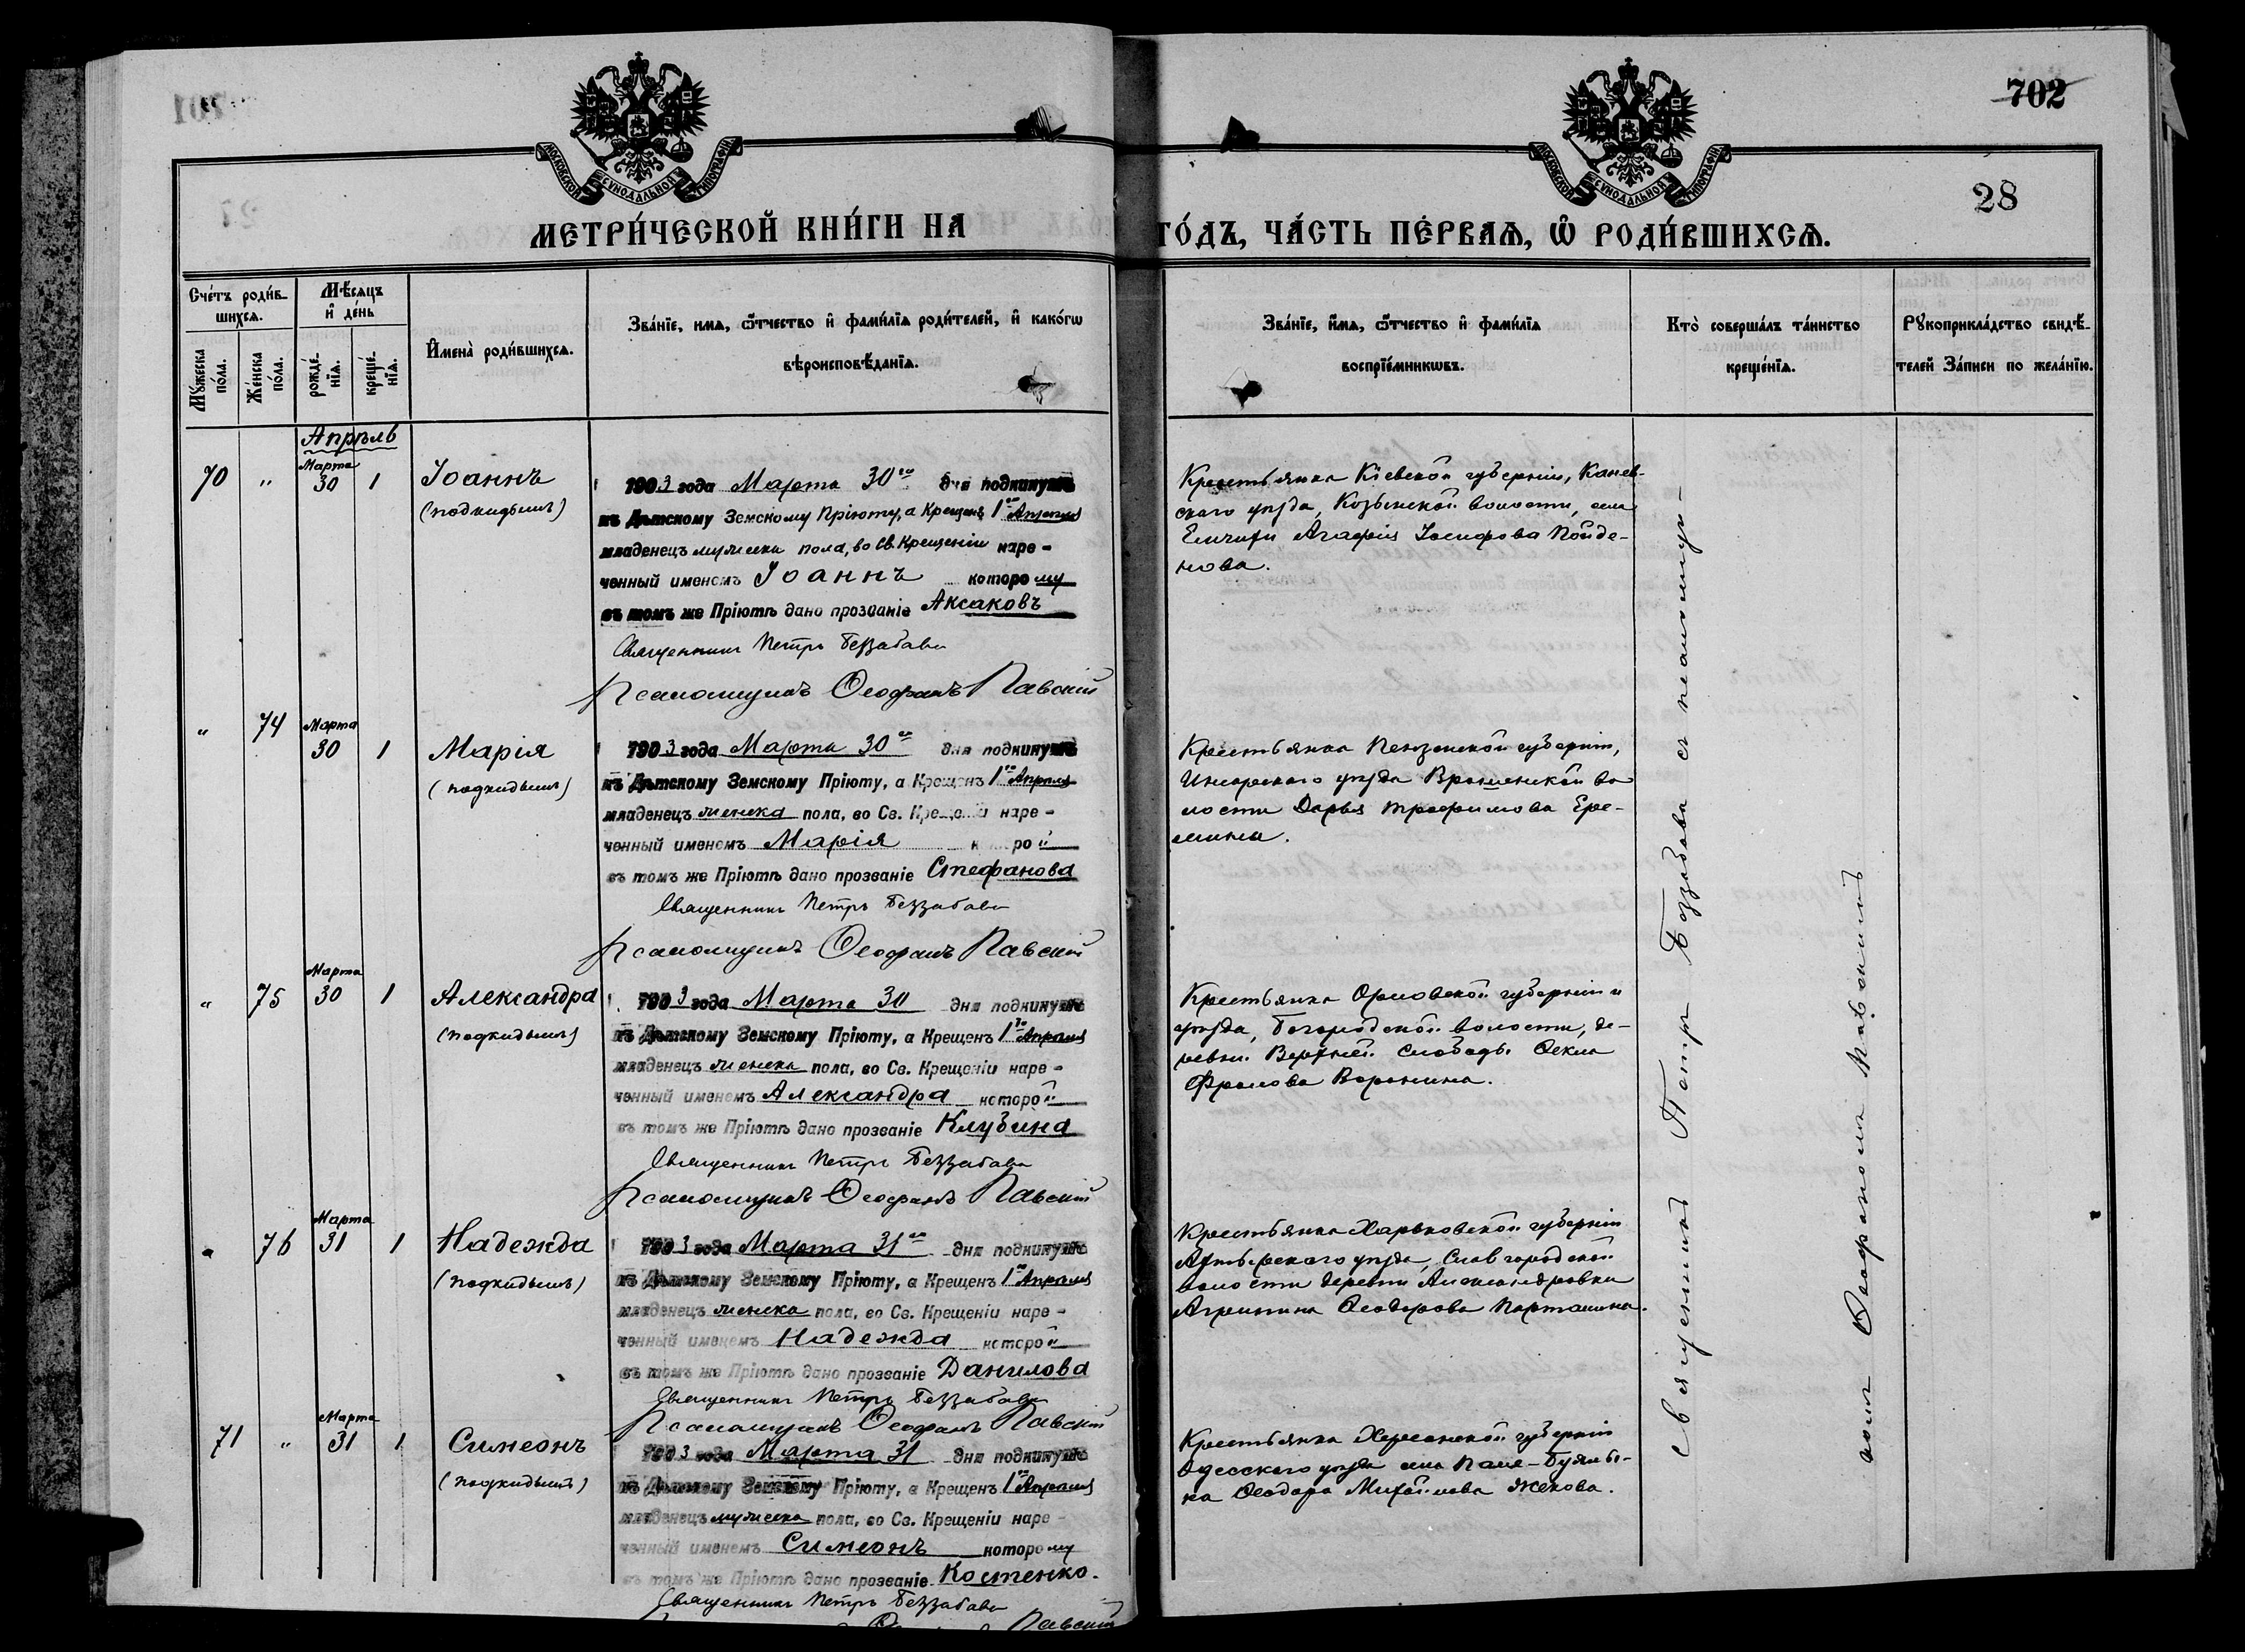 702
28
МОСКОВСКОЙ СѴНОДАЛЬНОЙ ТИПОГРАФІИ
МОСКОВСКОЙ СѴНОДАЛЬНОЙ ТИПОГРАФІИ
МЕТРИ́ЧЕСКОЙ КНИ́ГИ НА ГО́ДЪ, ЧА́СТЬ ПЕ́РВАѦ, Ѡ҆ РОДИ́ВШИХСѦ.
Сче́тъ роди́в-
шихсѧ.
Мꙋ́жеска по́ла.
Же́нска по́ла.
Мѣ́сѧцъ
и҆ де́нь
рожде́-
нїѧ.
креще́-
нїѧ.
И҆мена̀ роди́вшихсѧ.
Зва́нїе, и҆мѧ, ѻ҆́тчество и҆ фами́лїѧ роди́телей, и҆ како́гѡ
вѣроисповѣ́данїѧ.
Зва́нїе, и҆́мѧ, ѻ҆́тчество и҆ фами́лїѧ
воспрїе́мникѡвъ.
Кто̀ соверша́лъ та́инство
креще́нїѧ.
Рꙋкоприкла́дство свидѣ́-
телей За́писи по жела́нїю.
Апрѣль
70 " Марта 30 1 Іоаннъ (подкидышъ)
1903 года Марта 30го дня подкинутъ
къ Дѣтскому Земскому Пріюту, а Крещенъ 1го Апрѣля
младенецъ мужеска пола, во Св. Крещеніи наре-
ченный именемъ Іоаннъ которому
въ томъ же Пріютѣ дано прозваніе Аксаковъ
Священникъ Петръ Беззабава
Псаломщикъ Ѳеофанъ Павскій
Крестьянка Кіевской губерніи, Канев-
скаго уѣзда, Козынской волости, села
Агафія Іосифова
" 74 Марта 30 1 Марія (подкидышъ)
1903 года Марта 30го дня подкинутъ
къ Дѣтскому Земскому Пріюту, а Крещенъ 1го Апрѣля
младенецъ женска пола, во Св. Крещеніи наре-
ченный именемъ Марія которой
въ томъ же Пріютѣ дано прозваніе Стефанова
Священникъ Петръ Беззабава
Псаломщикъ Ѳеофанъ Павскій
Крестьянка Пензенской губерніи,
Инсарскаго уѣзда во-
лости Дарья Трофимова Ере-
мина.
" 75 Марта 30 1 Александра (подкидышъ)
1903 года Марта 30 дня подкинутъ
къ Дѣтскому Земскому Пріюту, а Крещенъ 1го Апрѣля
младенецъ женска пола, во Св. Крещеніи наре-
ченный именемъ Александра которой
въ томъ же Пріютѣ дано прозваніе Клубина
Священникъ Петръ Беззабава
Псаломщикъ Ѳеофанъ Павскій
Крестьянка Орловской губерніи и
уѣзда, Богородской волости, де-
ревни Верхней Слободы Ѳекла
Фролова Воронина.
" 76 Марта 31 1 Надежда (подкидышъ)
1903 года Марта 31го дня подкинутъ
къ Дѣтскому Земскому Пріюту, а Крещенъ 1го Апрѣля
младенецъ женска пола, во Св. Крещеніи наре-
ченный именемъ Надежда которой
въ томъ же Пріютѣ дано прозваніе Данилова
Священникъ Петръ Беззабава
Псаломщикъ Ѳеофанъ Павскій
Крестьянка Харьковской губерніи
уѣзда, Славгородской
волости деревни Александровки
Агрипина Ѳеодорова
71 " Марта 31 1 Симеонъ (подкидышъ)
1903 года Марта 31 дня подкинутъ
къ Дѣтскому Земскому Пріюту, а Крещенъ 1го Апрѣля
младенецъ мужеска пола, во Св. Крещеніи наре-
ченный именемъ Симеонъ которому
въ томъ же Пріютѣ дано прозваніе Костенко.
Священникъ Петръ Беззабава
Павскій
Крестьянка Херсонской губерніи
Одесскаго уѣзда села
Ѳеодора Михайлова Жекова.
Священникъ Петръ Беззабава съ псаломщи-
комъ Ѳеофаномъ Павскимъ